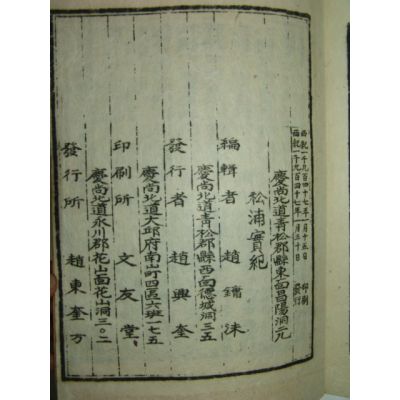 西紀一千九百四十七年一月十五日 印刷
西紀一千九百四十七年一月三十日 發行
松浦實紀
慶尚北道青松郡縣東面昌陽洞二九
編輯者 趙鏞沫
慶尚北道青松郡縣西面德城洞三五
發行者 趙興奎
慶尚北道大邱府南山町四區六班一七五
印刷所 文友堂
慶尚北道永川郡花山面花山洞三〇二
發行所 趙東奎方